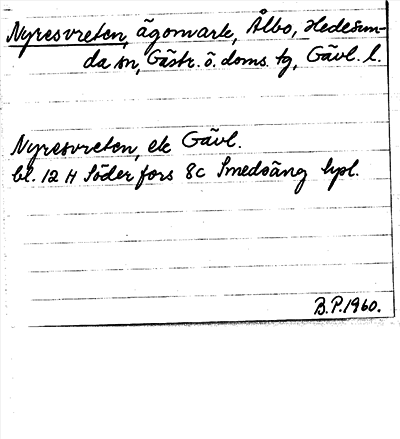 Nyresvreten, ägomark, Ålbo, Hedesun-
da sn, Gästr. ö. doms. tg, Gävl. l.
Nyresvreten, ek Gävl.
bl. 12 H Söderfors 8c Smedsäng hpl.
B.P. 1960.